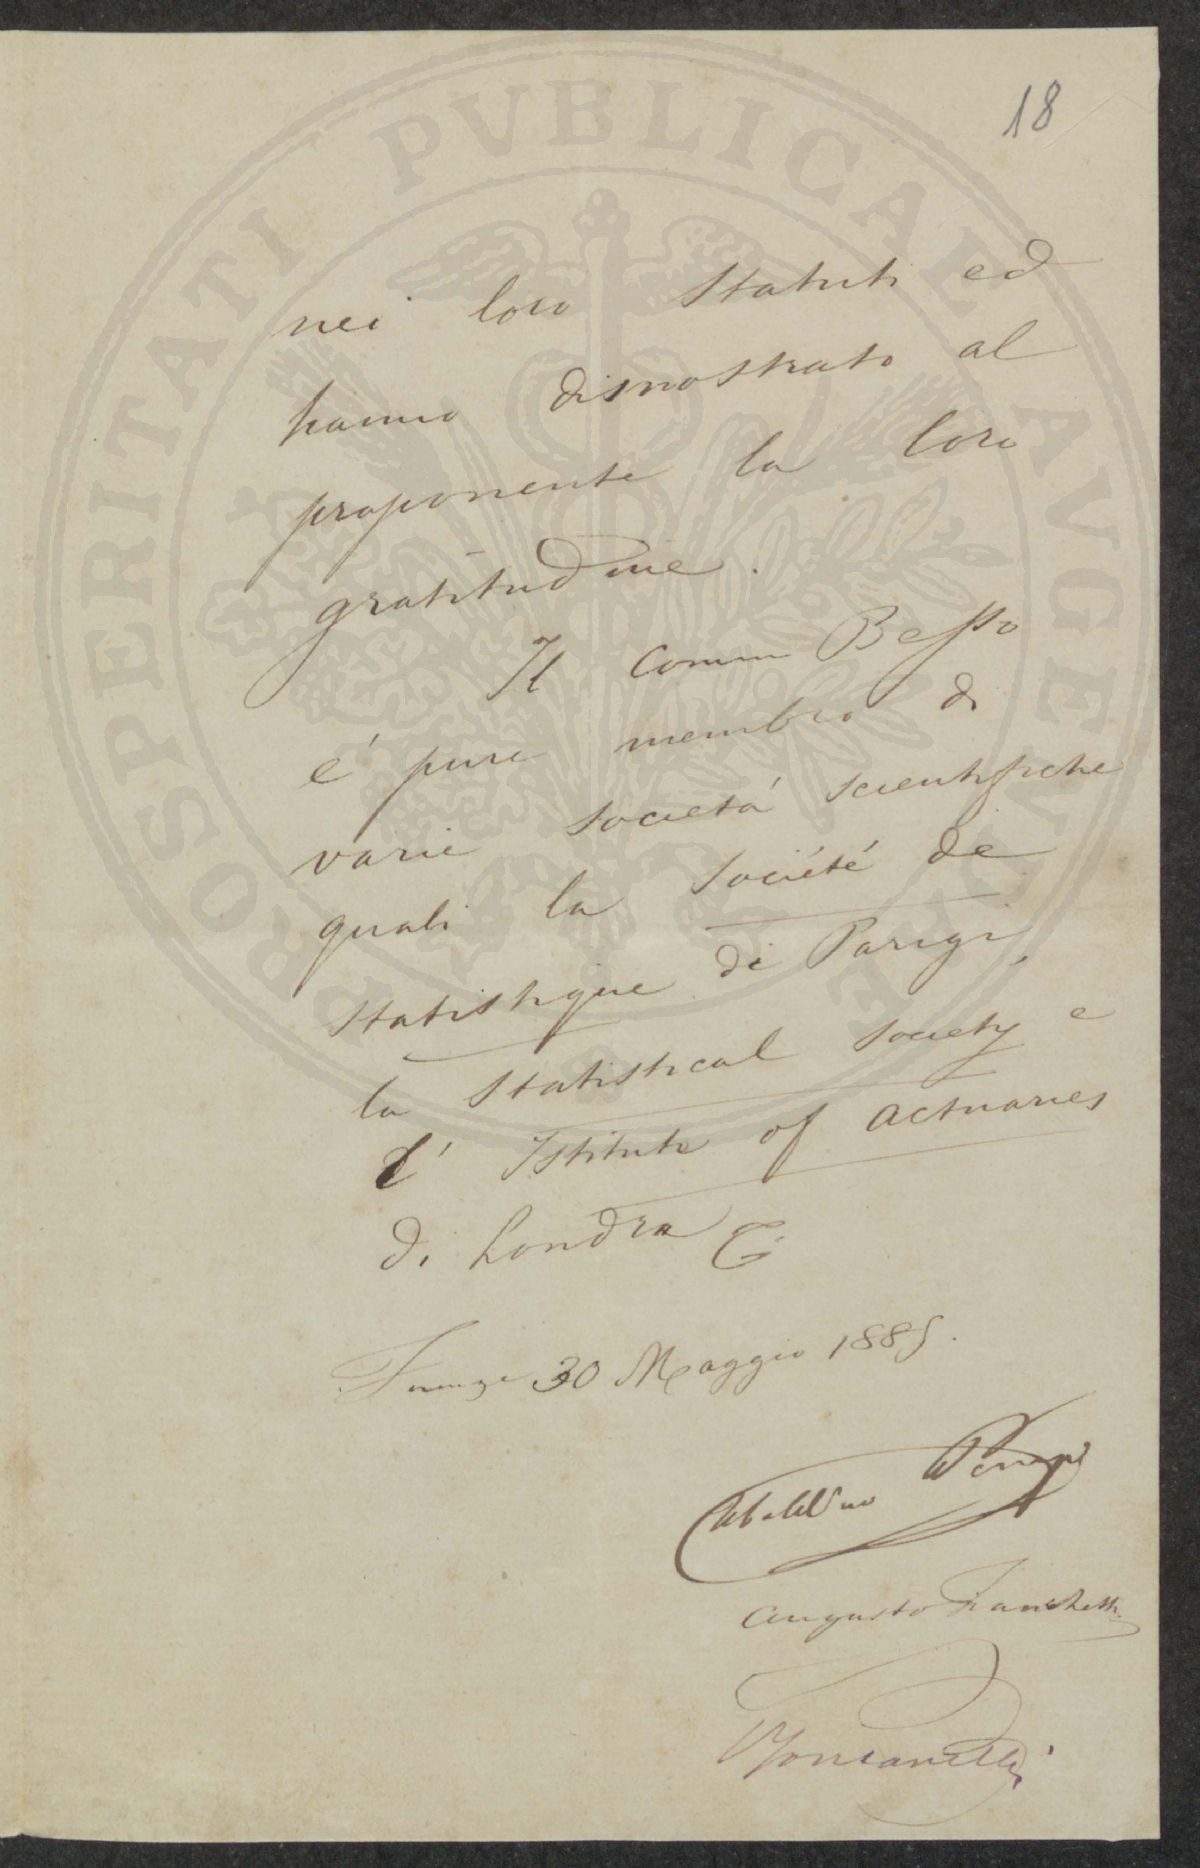 18
nei loro Statuti ed
hanno dimostrato al
proponente la loro
gratitudine.
Il Comm Besso
é pure membro di
varie società scientifiche
quali la Société de
Statistique di Parigi,
la Statistical Society e
l' Istitute of Actuaries
di Londra &.
Firenze 30 Maggio 1885.
Ubaldino Peruzzi
Augusto Franchetti
Fontanelli
PROSPERITATI PVBLICAE AVGENDAE